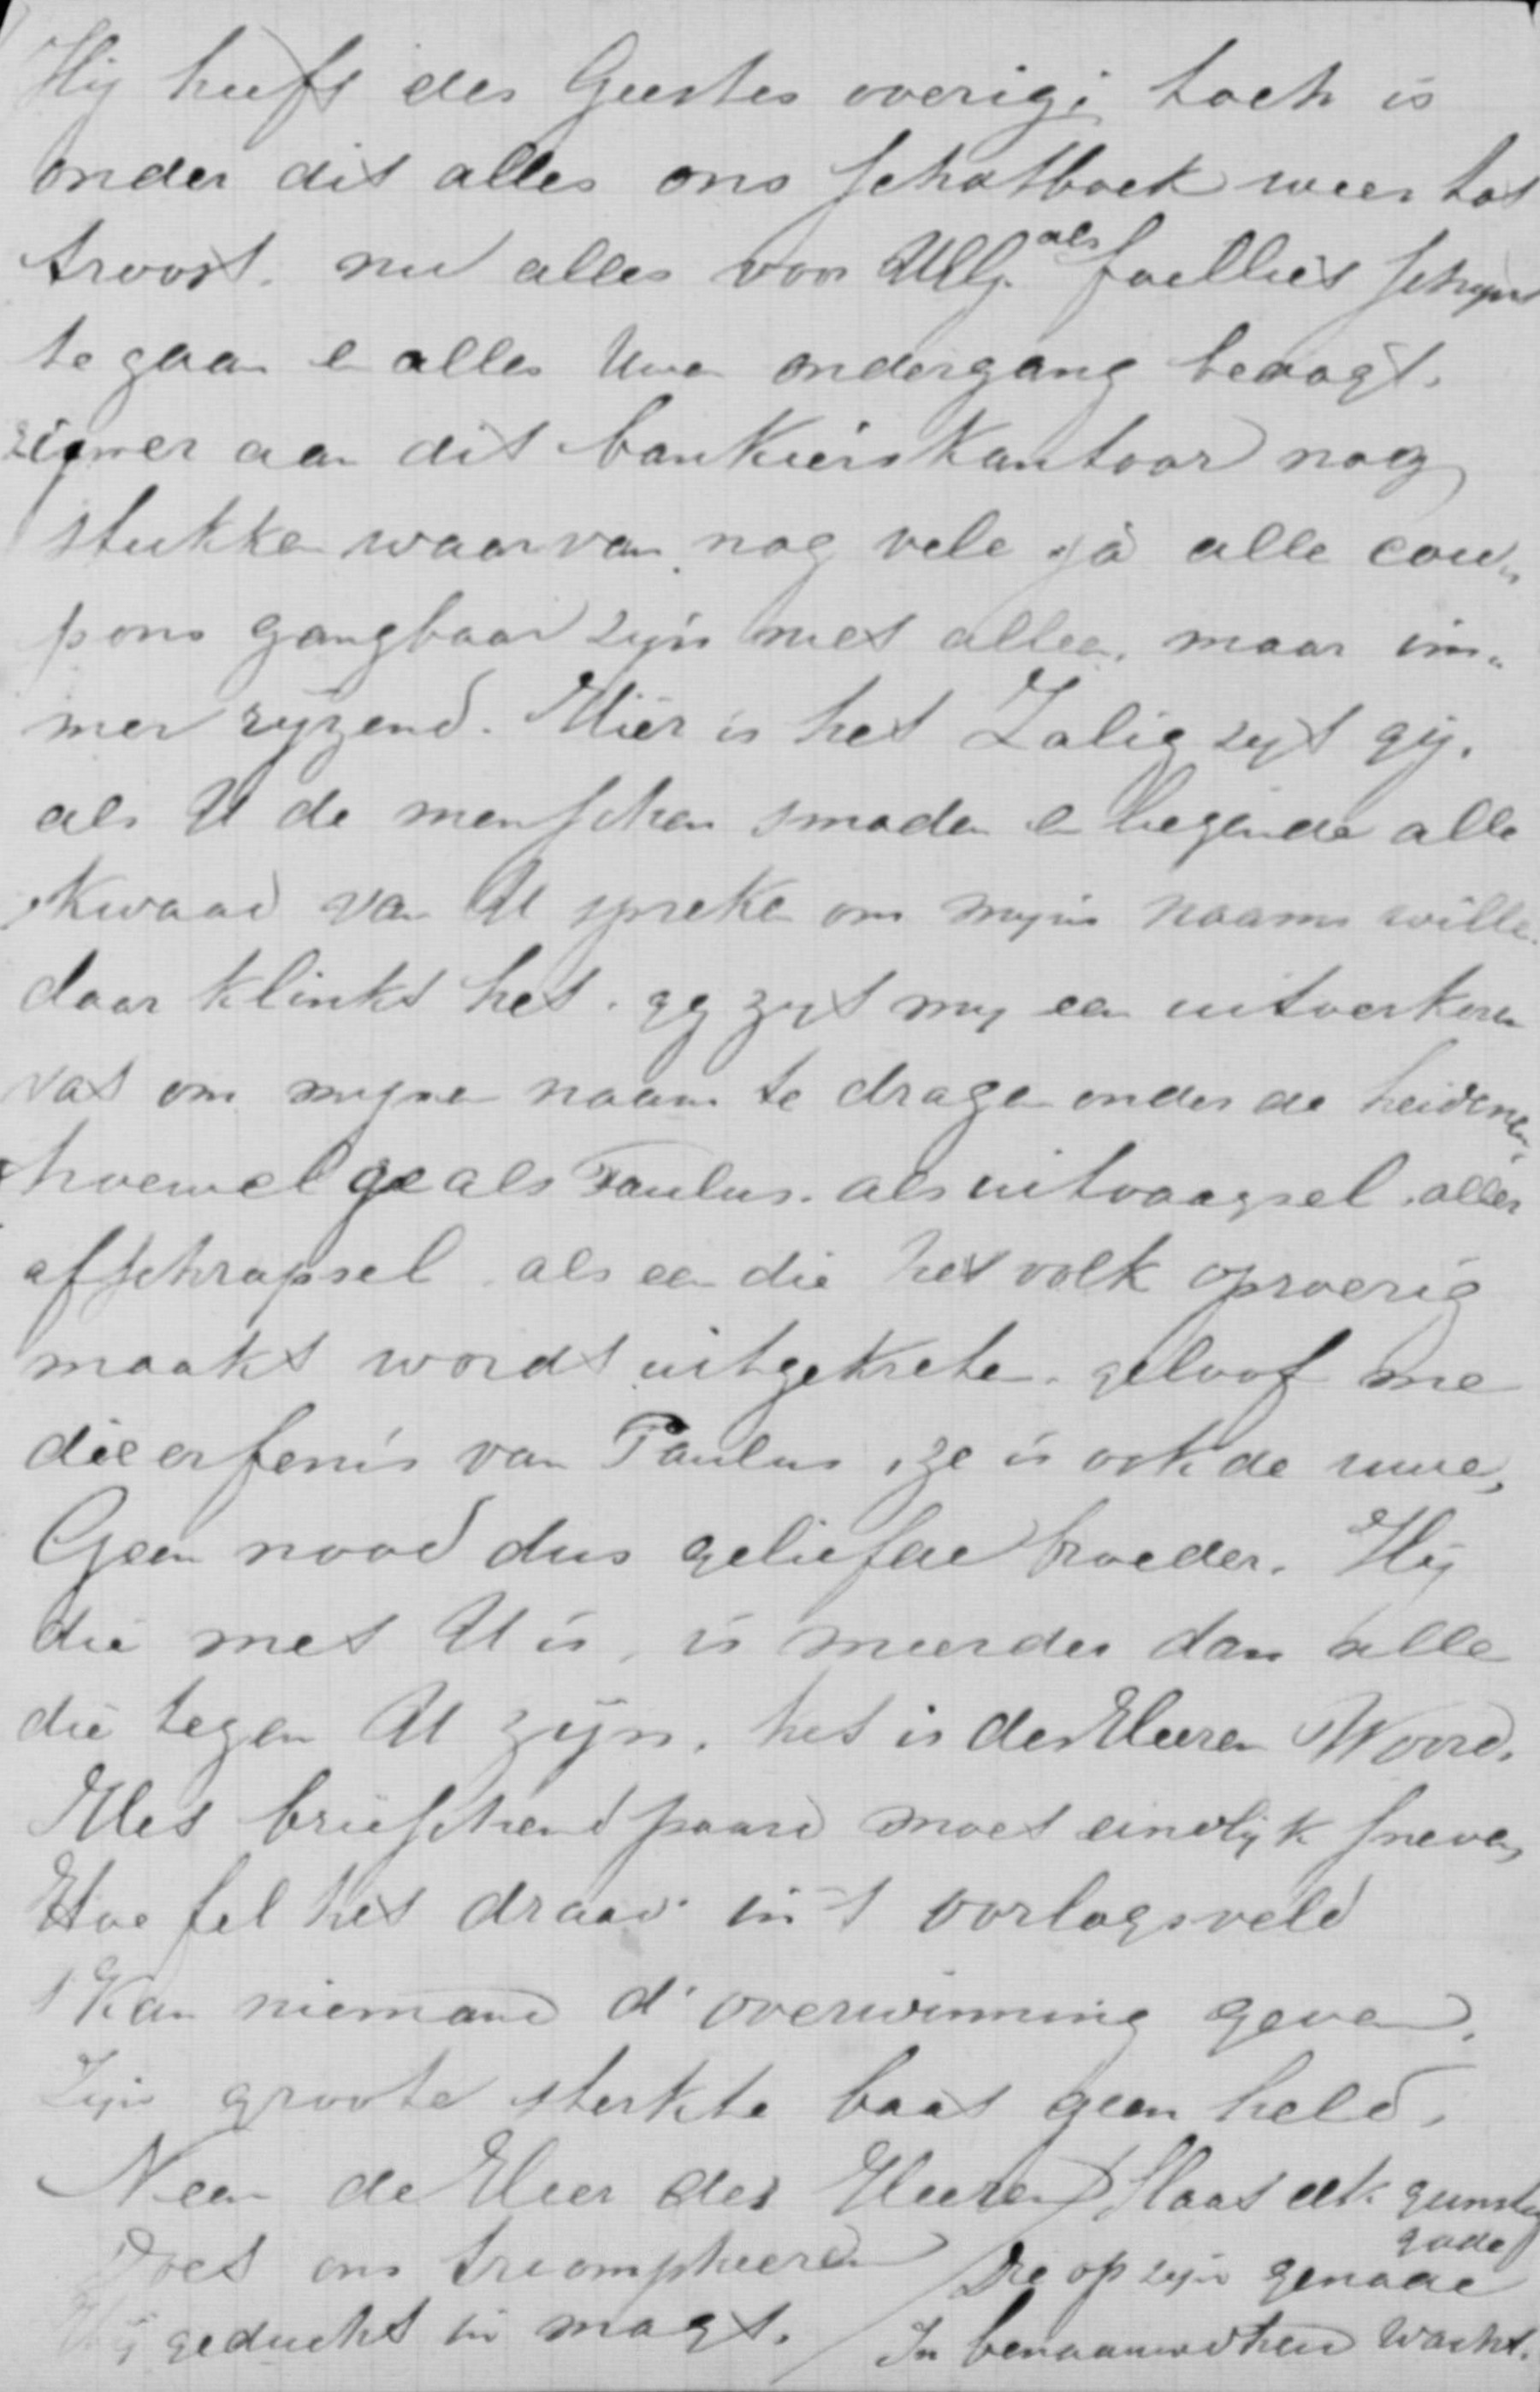 Hij heeft des Geestes overig; toch is
onder dit alles ons schatboek weer tot
troost. nu alles voor Ulb. als failliet schijnt
te gaan en alles Uwen ondergang beoogt.
zijn er aan dit bankierskantoor nog
stukken waarvan nog vele ja alle cou„
pons gangbaar zijn niet alleen, maar im„
mer rijzend. Hier is het Zalig zijt gij.
als U de menschen smaden en liegende alle
kwaad van U spreken om mijns naams wille.
daar klinkt het. gij zijt mij een uitverkoren
vat om mijnen naam te dragen onder de heidenen,
hoewel ge als Paulus. als uitvaagsel. aller
afschrapsel als een die het volk oproerig
maakt wordt uitgekreten. geloof me
die erfenis van Paulus, ze is ook de uwe,
Geen nood dus geliefde broeder. Hij
die met U is, is meerder dan alle
die tegen U zijn. het is des Heeren Woord.
Het briesschend paard moet eindlijk sneven,
Hoe fel het draav' in 't oorlogsveld
't Kan niemand d' overwinning geven,
Zijn groote sterkte baat geen held,
Neen de Heer der Heeren
Doet ons triompheeren
Hij geducht in magt.
Slaat elk gunstig
gade
Die op zijn genade
In benaauwdheid wacht.